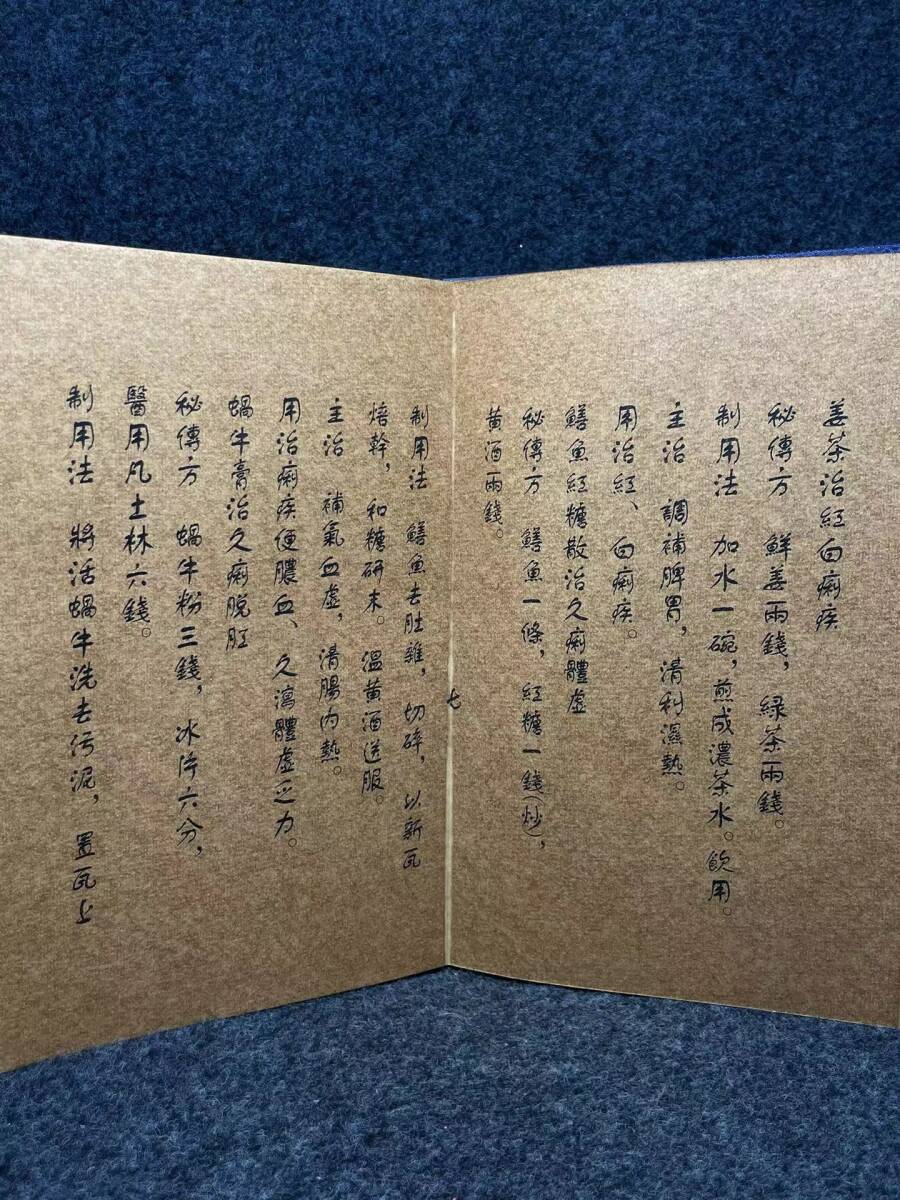 姜茶治紅白痢疾
秘傳方　鮮姜兩錢，綠茶兩錢。
制用法　加水一碗，煎成濃茶水。飲用。
主治　調補脾胃，清利濕熱。
用治紅、白痢疾。
鱔魚紅糖散治久痢體虛
秘傳方　鱔魚一條，紅糖一錢(炒)，
黃酒兩錢。
七
制用法　鱔魚去肚雜，切碎，以新瓦
焙幹，和糖研末。溫黃酒送服。
主治　補氣血虛，清腸內熱。
用治痢疾便膿血、久瀉體虛乏力。
蝸牛膏治久痢脫肛
秘傳方　蝸牛粉三錢，冰片六分，
醫用凡士林六錢。
制用法　將活蝸牛洗去污泥，置瓦上